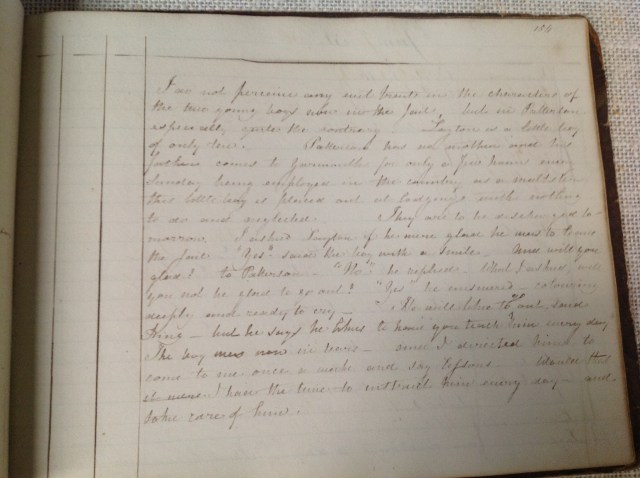 124
I do not perceive any evil traits in the characters of
the two young boys now in the Jail, but in Patterson
especially quite the contrary. Layton is a little boy
of only ten. Patterson has no mother and his
father comes to Yarmouth for only a few hours every
Sunday being employed in the country as a maltster
this little boy is placed out at lodgings with nothing
to do and neglected. They are to be discharged to-
morrow. I asked Layton if he were glad he was to leave
the Jail. "Yes" said the boy with a smile. And will you
glad? to Patterson - "No" he replied - What I asked will
you not be glad to go out? "Yes" he answered - colouring
deeply and ready to cry - "He will like to go out, said
King - but he says he likes to have you teach him every day"
The boy was now in tears - and I directed him to
come to me once a week and say lessons - Would
I had the time to instruct him every day - and
take care of him.